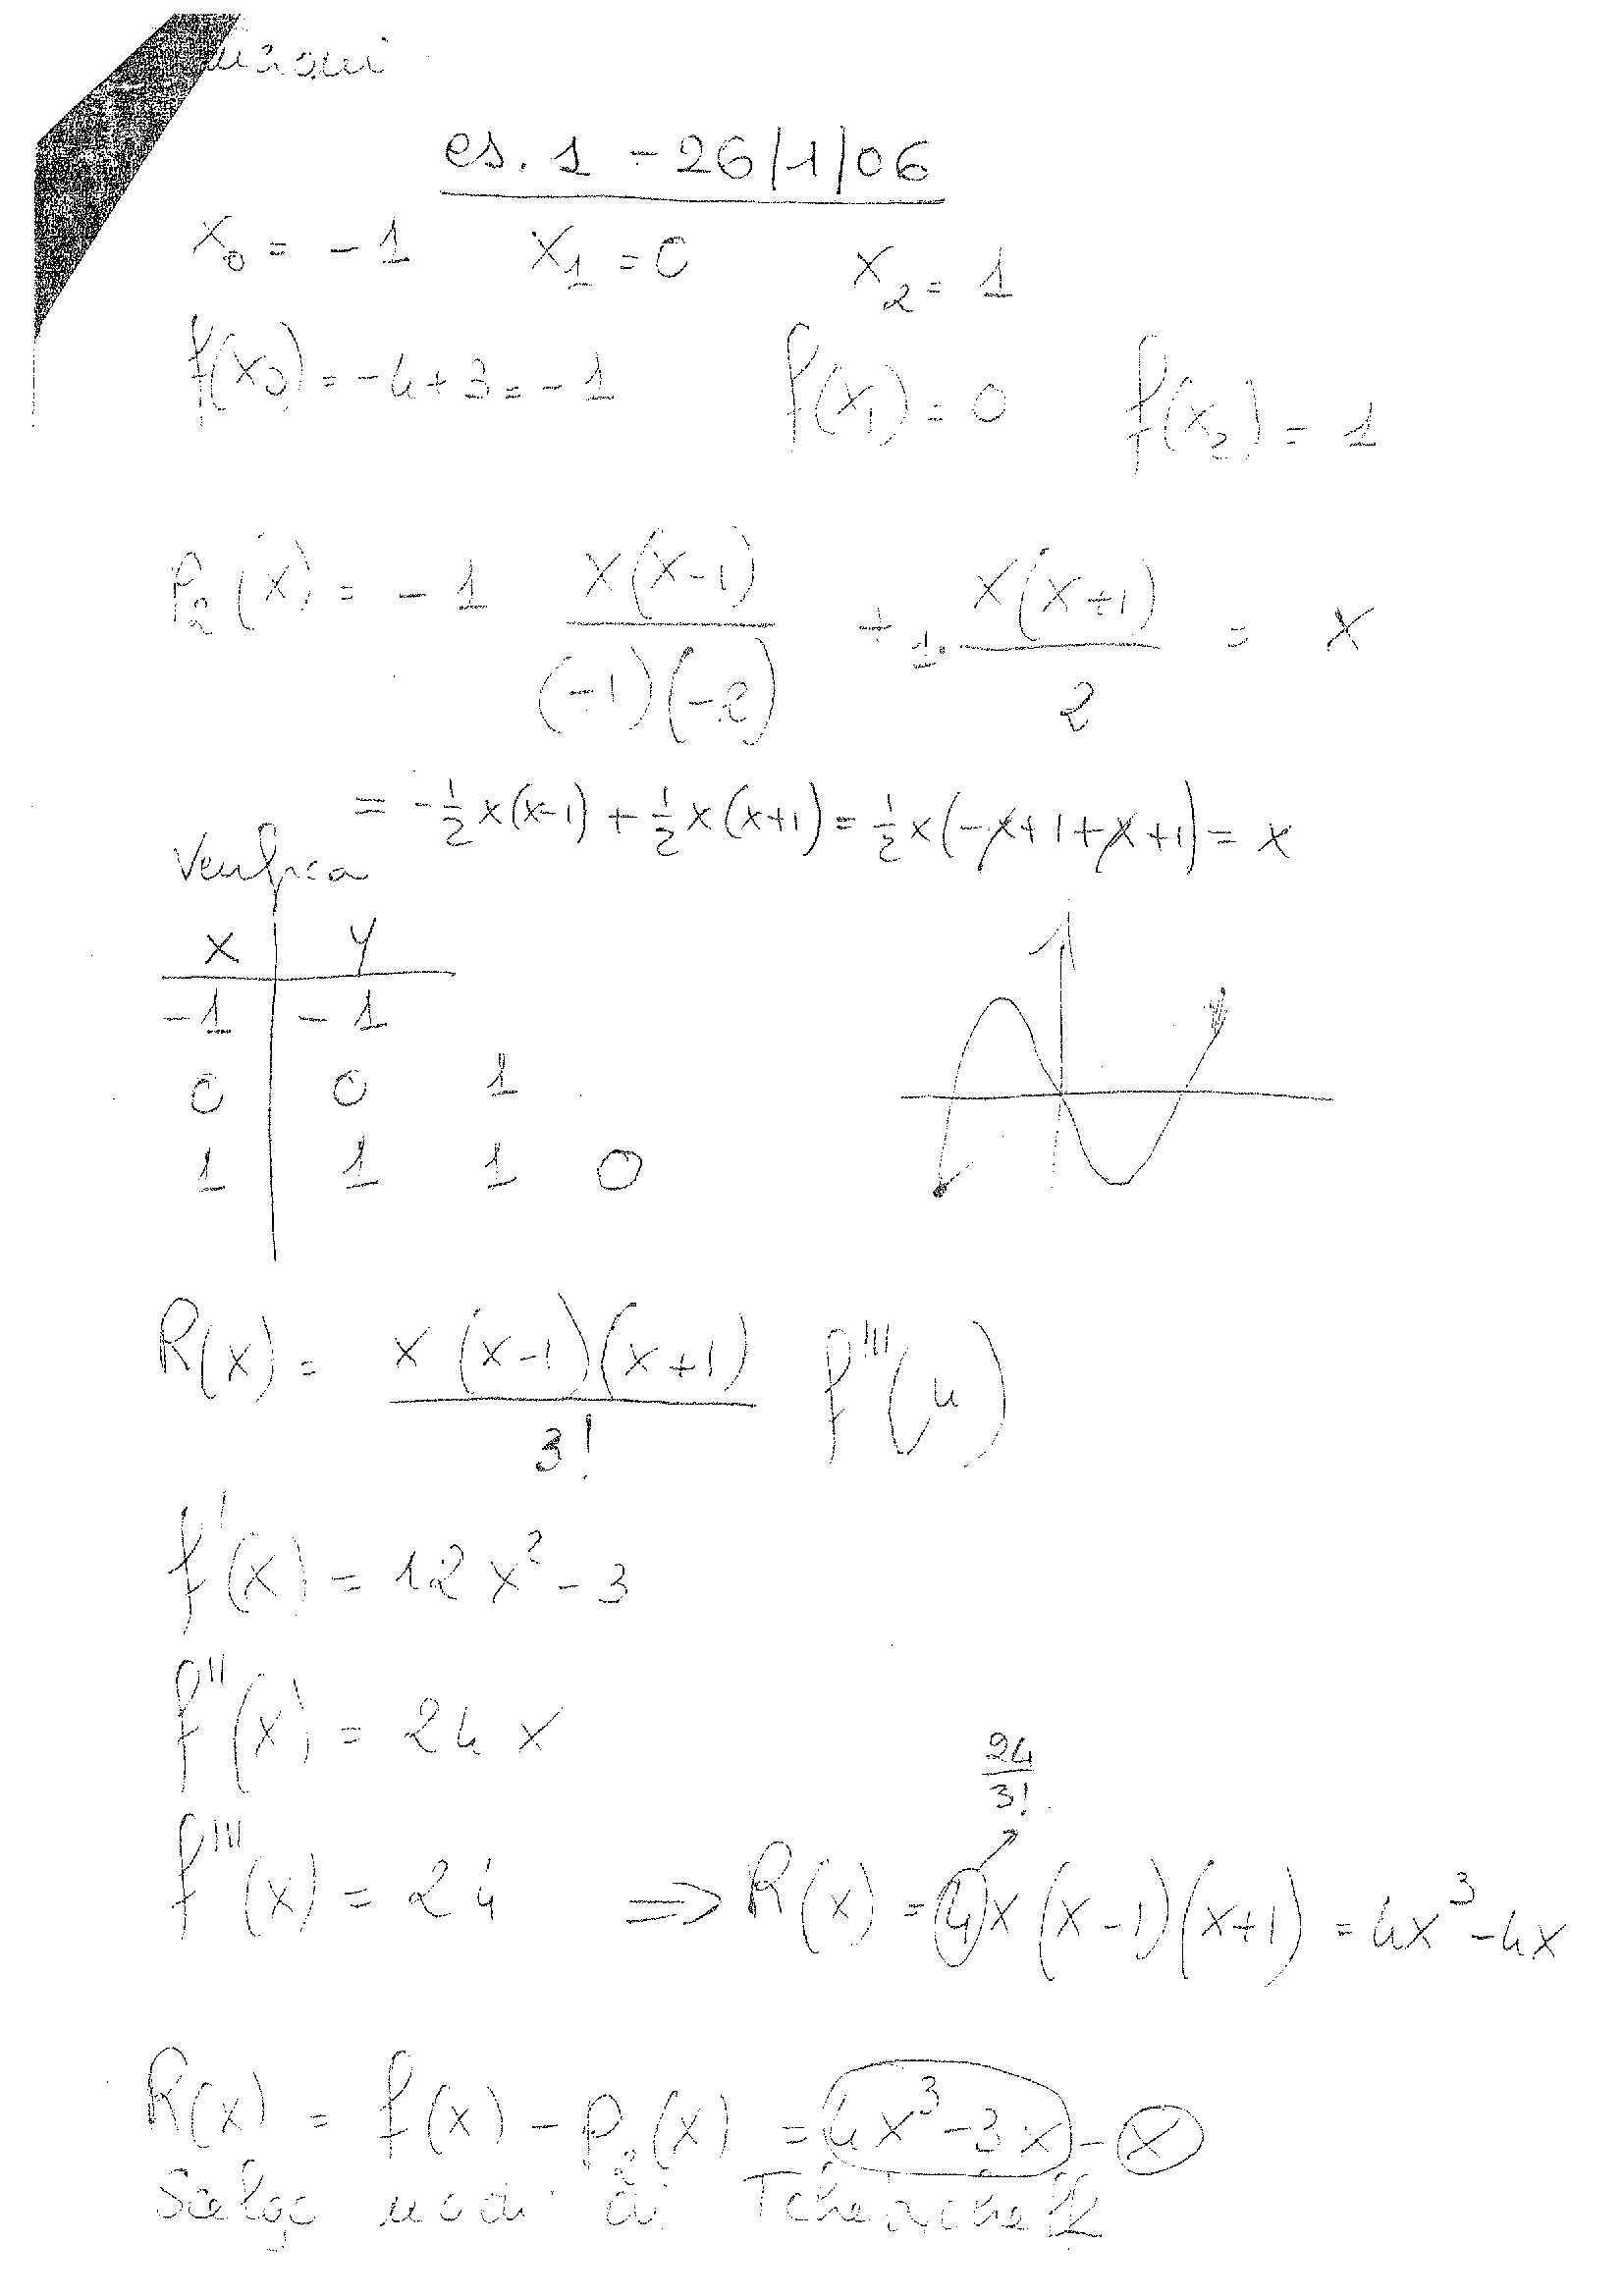 es. 1 - 26/1/06
x₀ = -1 x₁ = 0 x₂ = 1
f(x₀) = -4+3 = -1 f(x₁) = 0 f(x₂) = 1
P₂(x) = -1 x(x-1)/((-1)(-2)) + 1· x(x+1)/2 = x
= -1/2 x(x-1) + 1/2 x(x+1) = 1/2 x(-x+1+x+1) = x
Verifica
x y
-1 -1
0 0 1
1 1 1 0
R(x) = x(x-1)(x+1)/3! f'''(u)
f'(x) = 12x² - 3
f''(x) = 24x
24/3!
f'''(x) = 24 ⇒ R(x) = 4x(x-1)(x+1) = 4x³-4x
R(x) = f(x) - P₂(x) = 4x³-3x - x
Scelgo nodi di